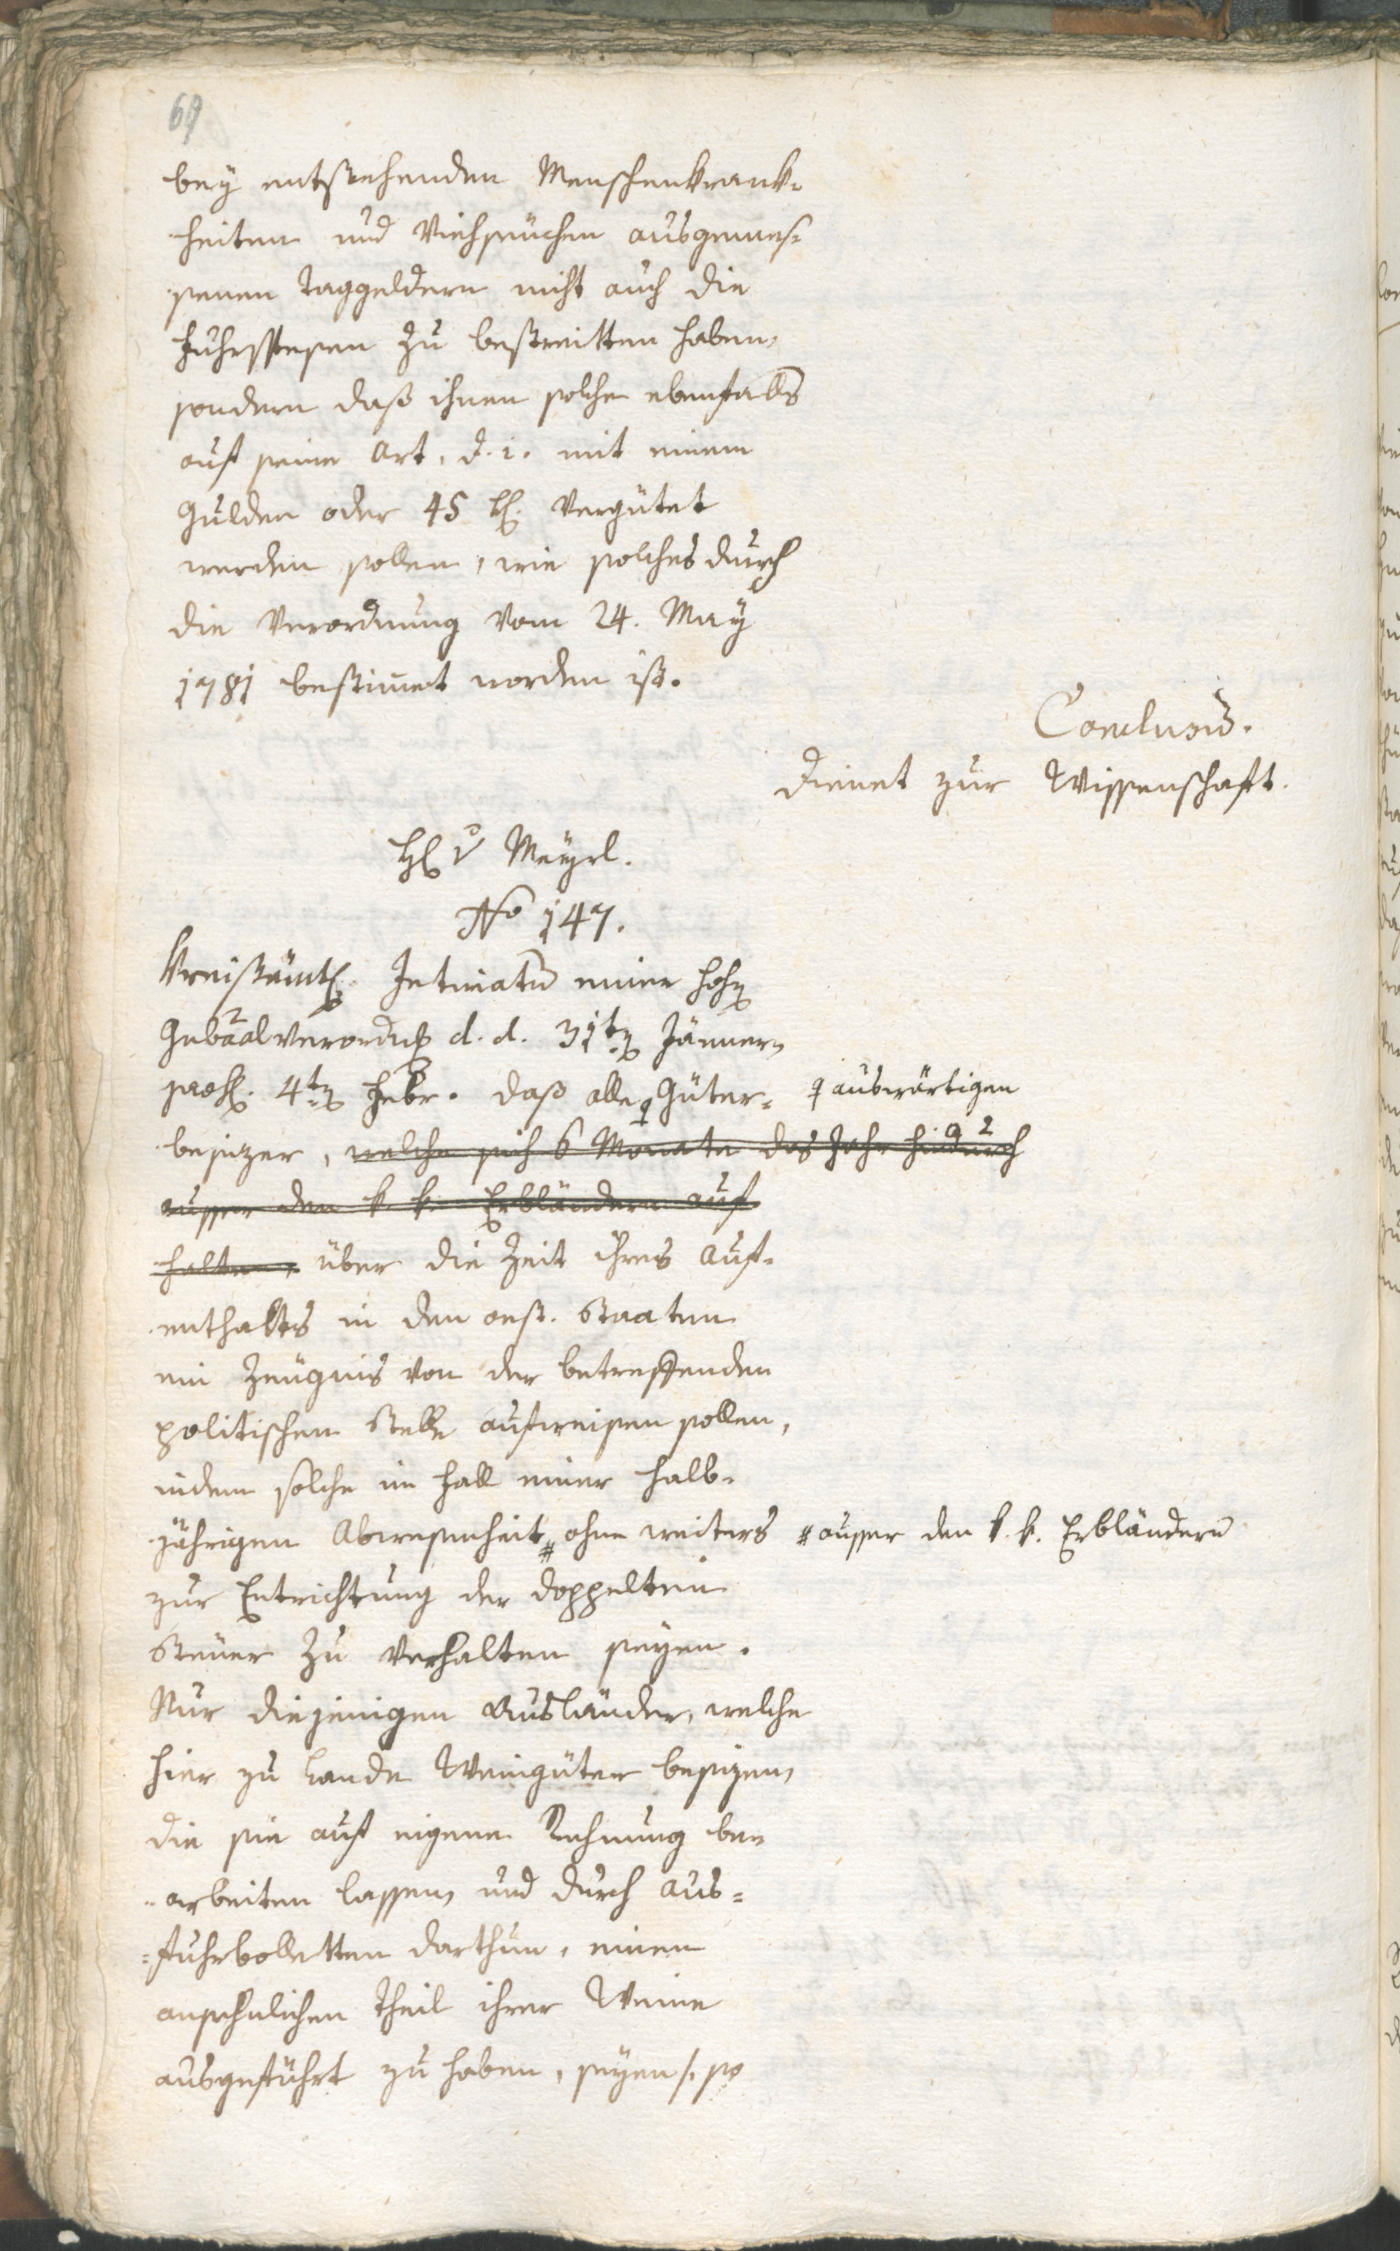 69
bey entstehenden Menschenkrank-
heiten und Viehseüchen ausgemes-
senen Taggeldern nicht auch die
Fuhrspesen zu bestreitten haben,
sondern daß ihnen solche ebenfalls
auf seine Art, d. i. mit einem
Gulden oder 45 kr. vergütet
werden sollen, wie solches durch
die Verordnung vom 24. May
1781 bestimet worden ist.
Conclusum.
Dienet zur Wissenschaft.
H v Mayrl.
No 147.
Kreißämtl. Intimatum einer hohen
Gubaalverordng d. d. 31ten Jänner,
praes. 4ten Febr. daß alle Güter- auswärtigen
besizer, welche sich 6 Monate das Jahr hindurch
ausser den k. k. Erbländern auf
halten, über die Zeit ihres Auf-
enthaltes in den oest. Staaten
ein Zeügnis von der betreffenden
politischen Stelle aufweisen sollen,
indem solche im Fall einer halb-
jährigen Abwesenheit # ohne weiters # ausser den k. k. Erbländern
zur Entrichtung der doppelten
Steüer zu verhalten seyen.
Nur diejenigen Ausländer, welche
hier zu Lande Weingüter besizen,
die sie auf eigene Rechnung be-
arbeiten lassen, und durch Aus-
=fuhrbolletten darthun, einen
ansehnlichen Theil ihrer Weine
ausgeführt zu haben, seyen /: so